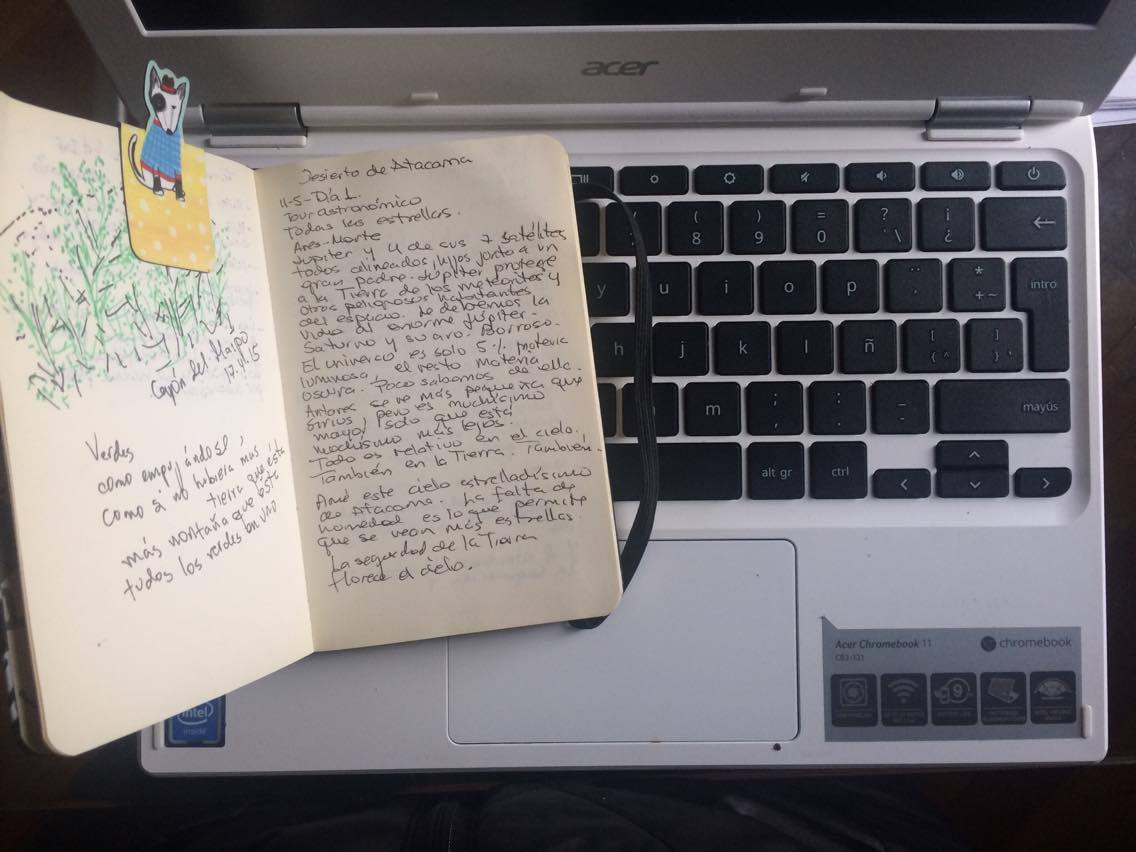 acer
Cajón del Maipo
17.11.15
Verdes
como empujándose,
como si no hubiera más
tierra que esta
más montaña que esta
todos los verdes en uno
Desierto de Atacama
11-5-Día 1.
Tour astronómico
Todas las estrellas.
Ares-Marte
Júpiter y 4 de sus 7 satélites
todos alineados, hijos junto a un
gran padre. Júpiter protege
a la Tierra de los meteoritos y
otros peligrosos habitantes
del espacio. Le debemos la
vida al enorme Júpiter.
Saturno y su aro. Borroso.
El universo es solo 5% materia
luminosa, el resto materia
oscura. Poco sabemos de ella.
Antares se ve más pequeña que
Sirius, pero es muchísimo
mayor, solo que está
muchísimo más lejos.
Todo es relativo en el cielo.
También en la Tierra. También.
Amé este cielo estrelladísimo
de Atacama. La falta de
humedad es lo que permite
que se vean más estrellas.
La sequedad de la Tierra
florece el cielo.
/ ( ) = ? ¡
8 9 0 ' \ ¿ ←
y u i o p ¨ * intro
+ ~
h j k l ñ [ ]
{ ^ } '
m ; : _ mayús
, . -
alt gr ctrl
Acer Chromebook 11
CB3-131
chromebook
intel
inside